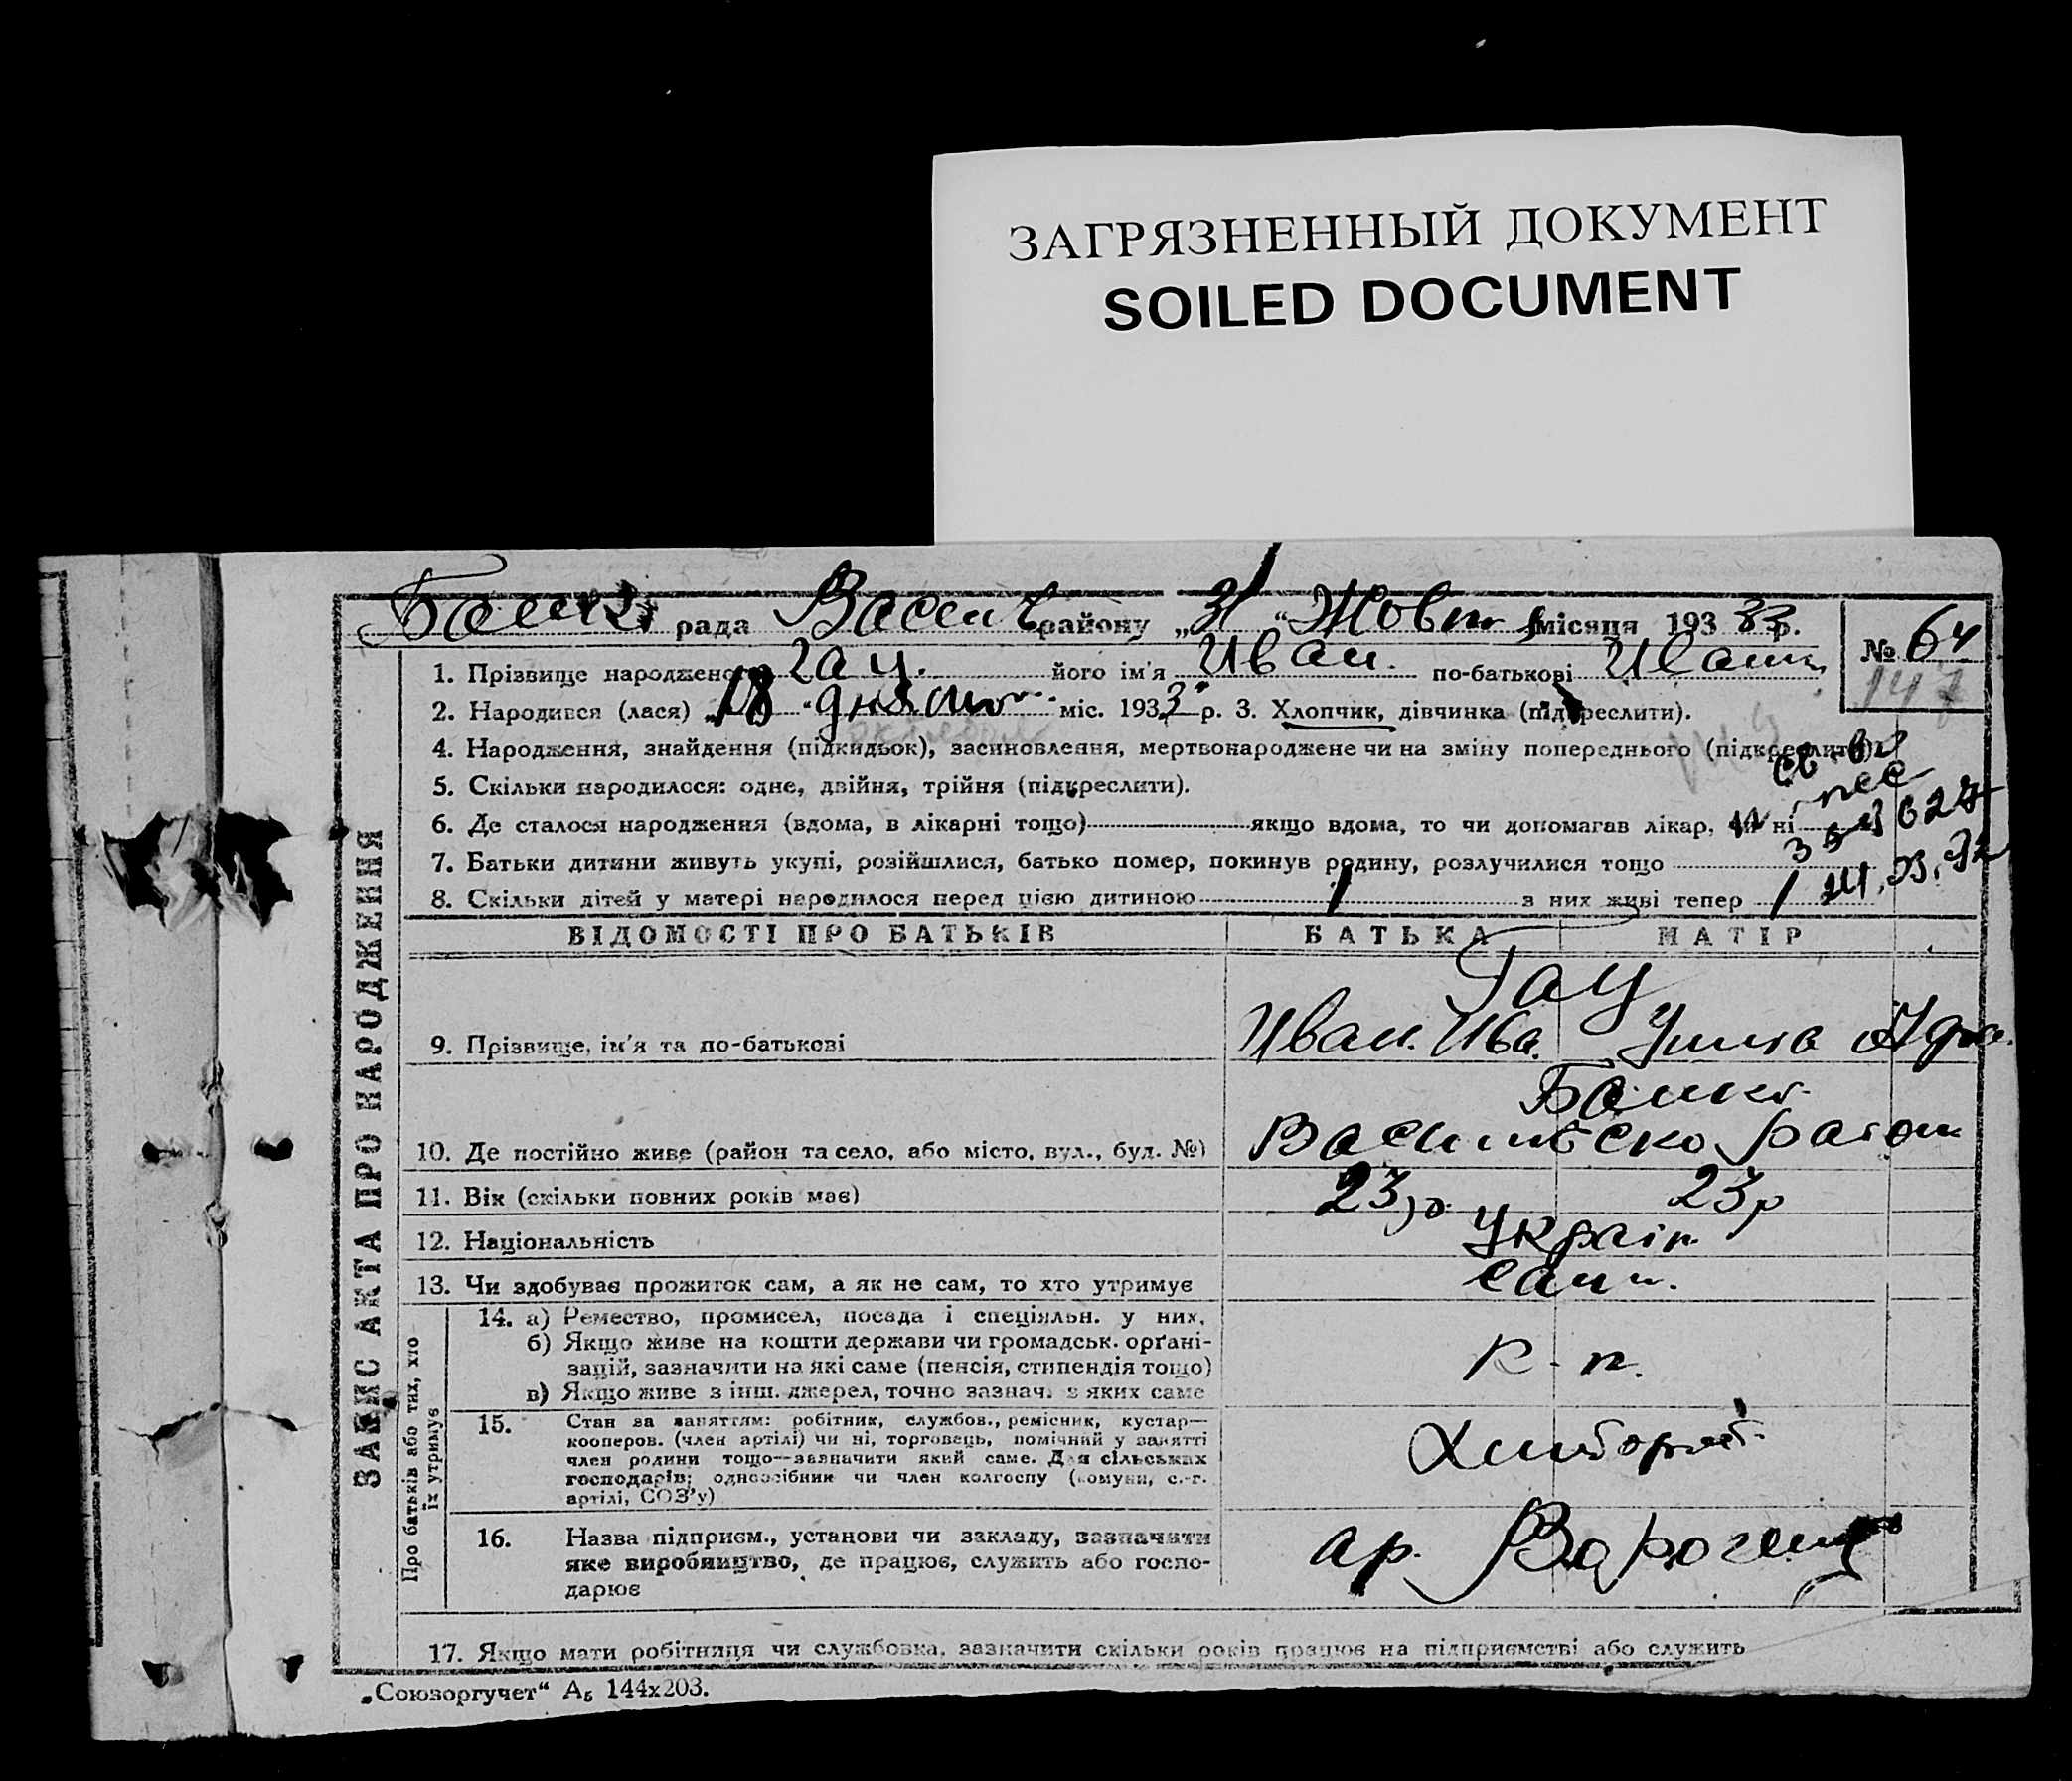 ЗАГРЯЗНЕННЫЙ ДОКУМЕНТ
SOILED DOCUMENT
рада Василів району „31“ Жовтня місяця 193 33 р.
№ 64
147
1. Прізвище народженого Гац. його ім'я Иван. по-батькові Иван
2. Народився (лася) „18“ дня міс. 193 3 р. 3. Хлопчик, дівчинка (підкреслити).
4. Народження, знайдення (підкидьок), засиновлення, мертвонароджене чи на зміну попереднього (підкреслити)
5. Скільки народилося: одне, двійня, трійня (підкреслити).
6. Де сталося народження (вдома, в лікарні тощо) якщо вдома, то чи допомагав лікар, чи ні
7. Батьки дитини живуть укупі, розійшлися, батько помер, покинув родину, розлучилися тощо
8. Скільки дітей у матері народилося перед цією дитиною 1 з них живі тепер 1
ЗАПИС АКТА ПРО НАРОДЖЕННЯ
ВІДОМОСТІ ПРО БАТЬКІВ БАТЬКА МАТІР
Гац
9. Прізвище, ім'я та по-батькові Иван. Ива.
10. Де постійно живе (район та село, або місто, вул., буд. №) район
11. Вік (скільки повних років має) 23 р. 23 р
12. Національність Україн
13. Чи здобуває прожиток сам, а як не сам, то хто утримує сами.
Про батьків або тих, хто їх утримує
14. а) Ремество, промисел, посада і спеціяльн. у них.
б) Якщо живе на кошти держави чи громадськ. орґані-
зацій, зазначити на які саме (пенсія, стипендія тощо) к-п.
в) Якщо живе з інш. джерел, точно зазнач. з яких саме
15. Стан за заняттям: робітник, службов., ремісник, кустар—
кооперов. (член артілі) чи ні, торговець, помічний у занятті
член родини тощо—зазначити який саме. Для сільських Хлібороб
господарів; одноосібник чи член колгоспу (комуни, с.-г.
артілі, СОЗ'у)
16. Назва підприєм., установи чи закладу, зазначити
яке виробництво, де працює, служить або госпо- ар.
дарює
17. Якщо мати робітниця чи службовка, зазначити скільки років працює на підприємстві або служить
„Союзоргучет“ А₅ 144х203.